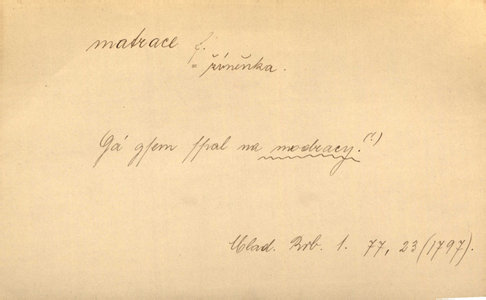 matrace f.
= žíněnka.
Gá gsem spal na modracy. (!)
Mlad. Rrb. 1. 77, 23 (1797).